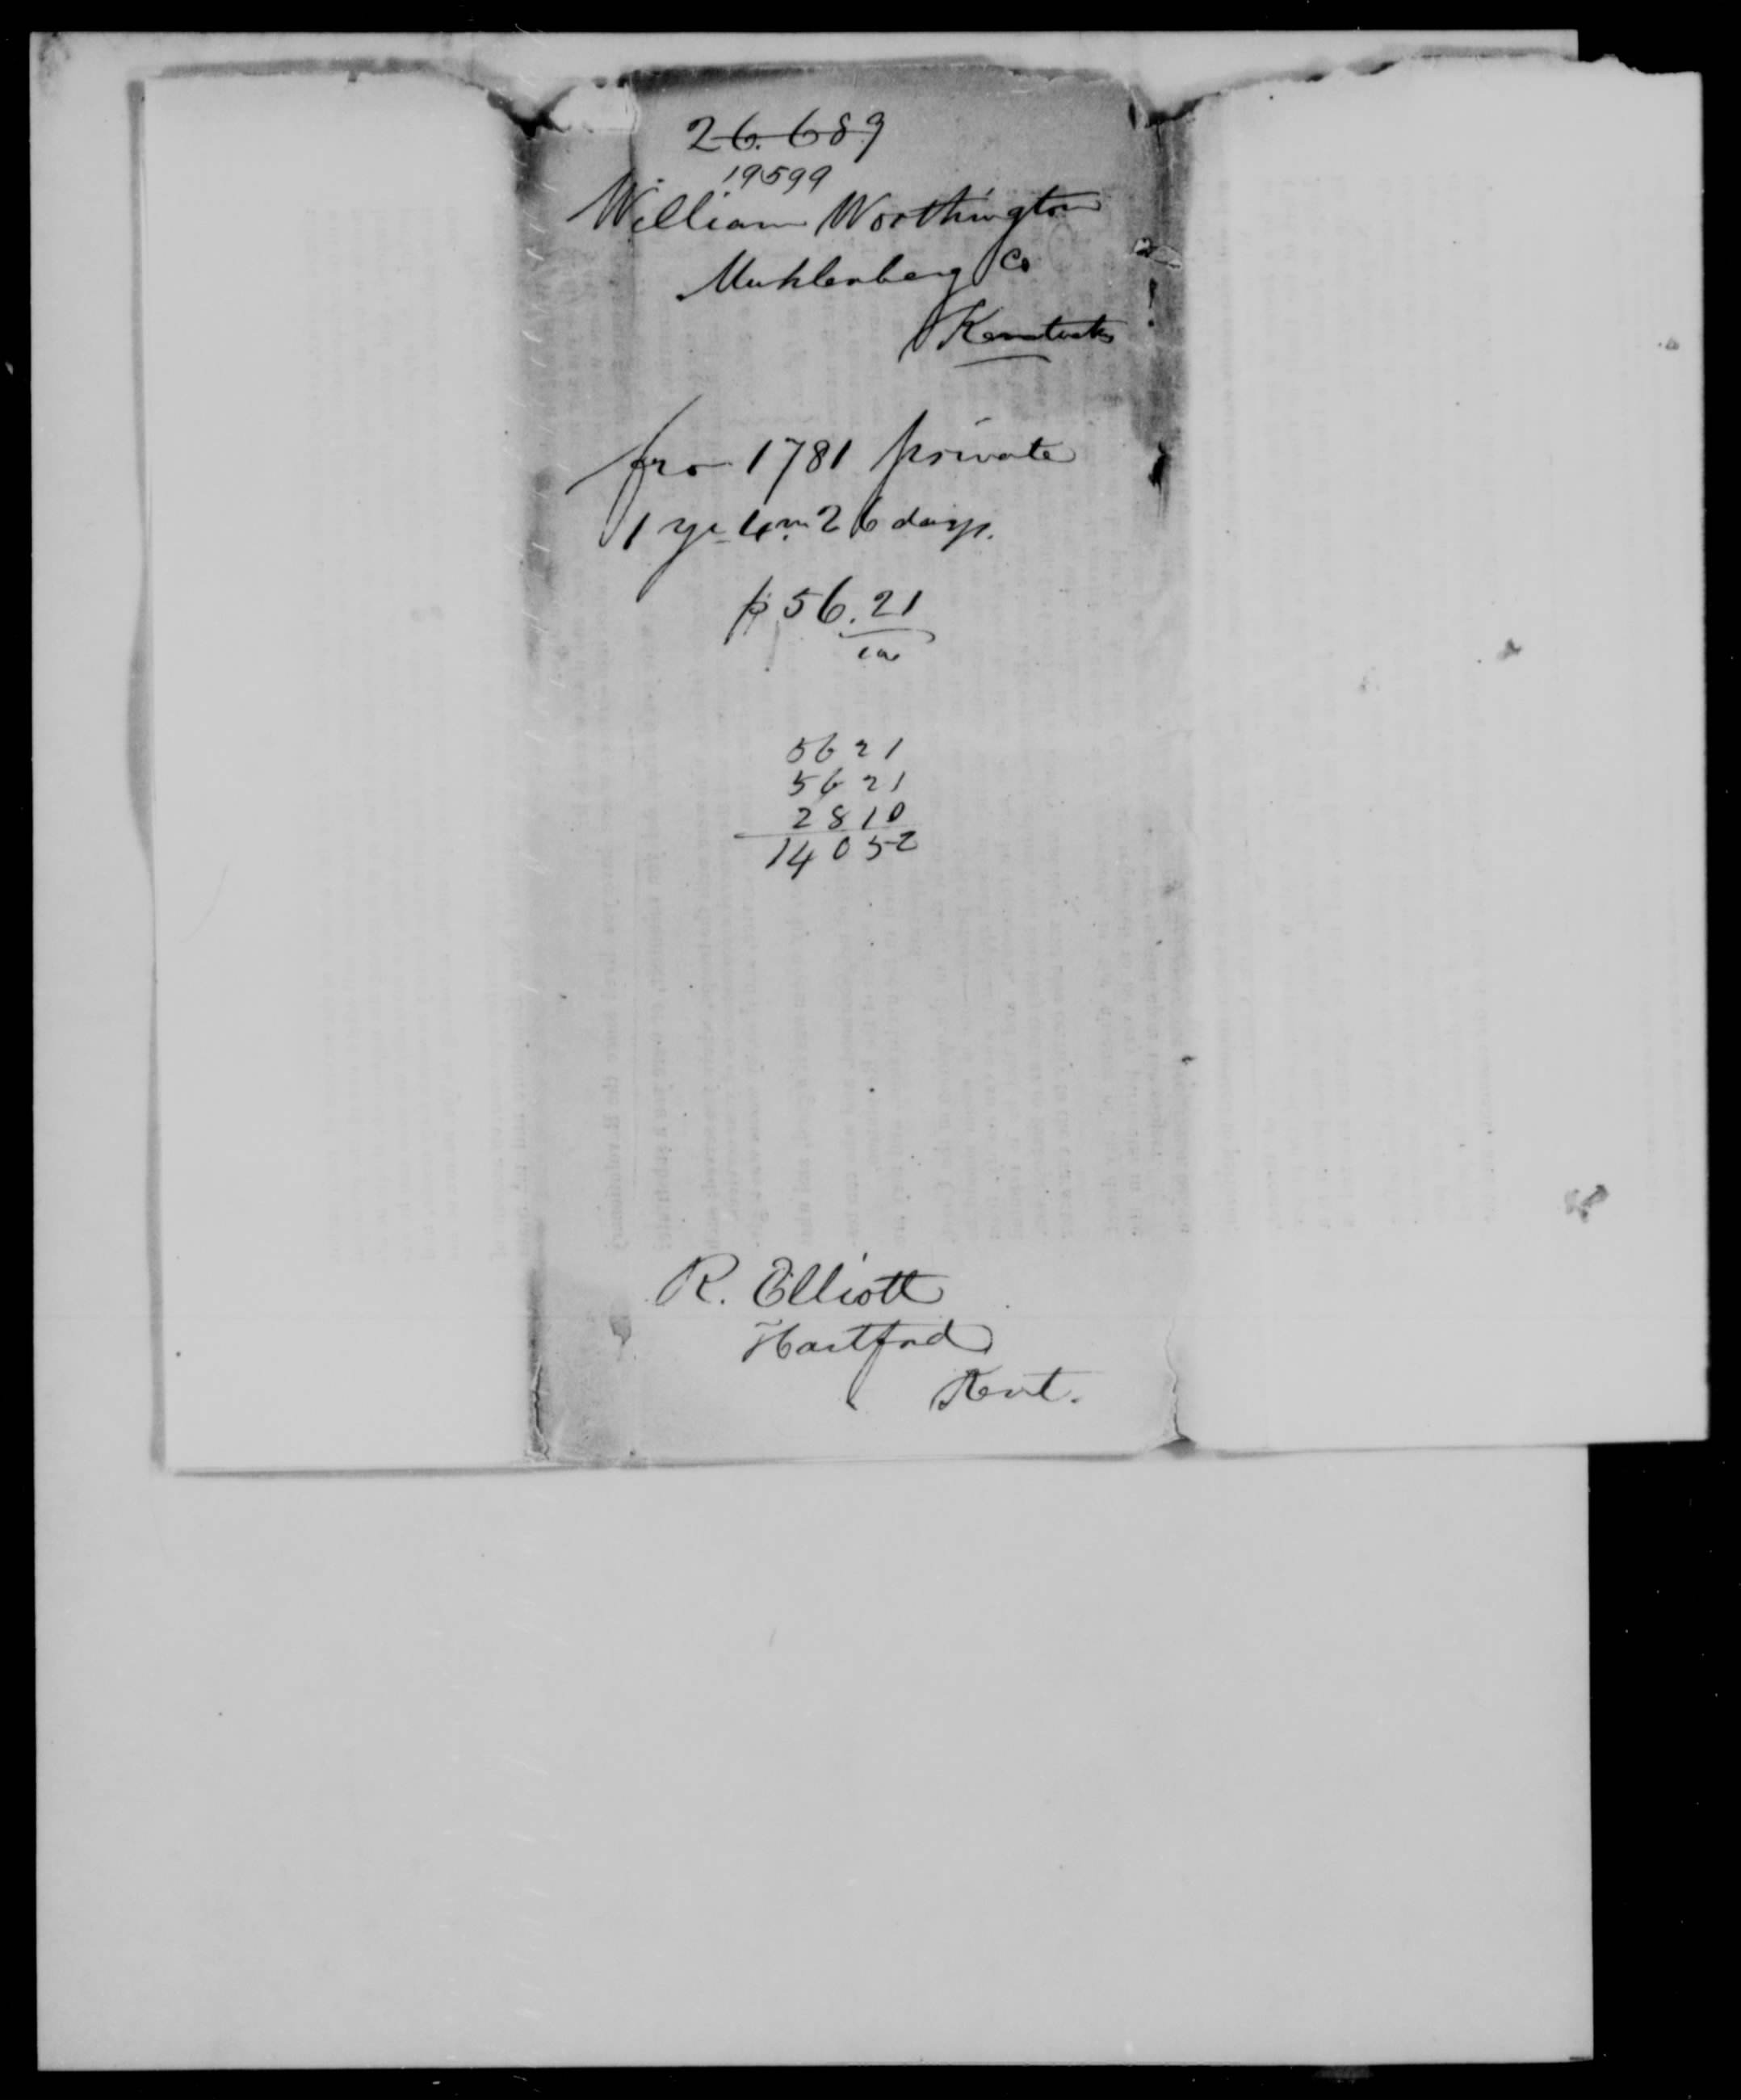 26.689
19599
William Worthington
Muhlenberg Co
Kentucky
fro 1781 private
1 yr 4m. 26 days.
$56.21
5621
5621
2810
14052
R. Elliott
Hartford
Kent.